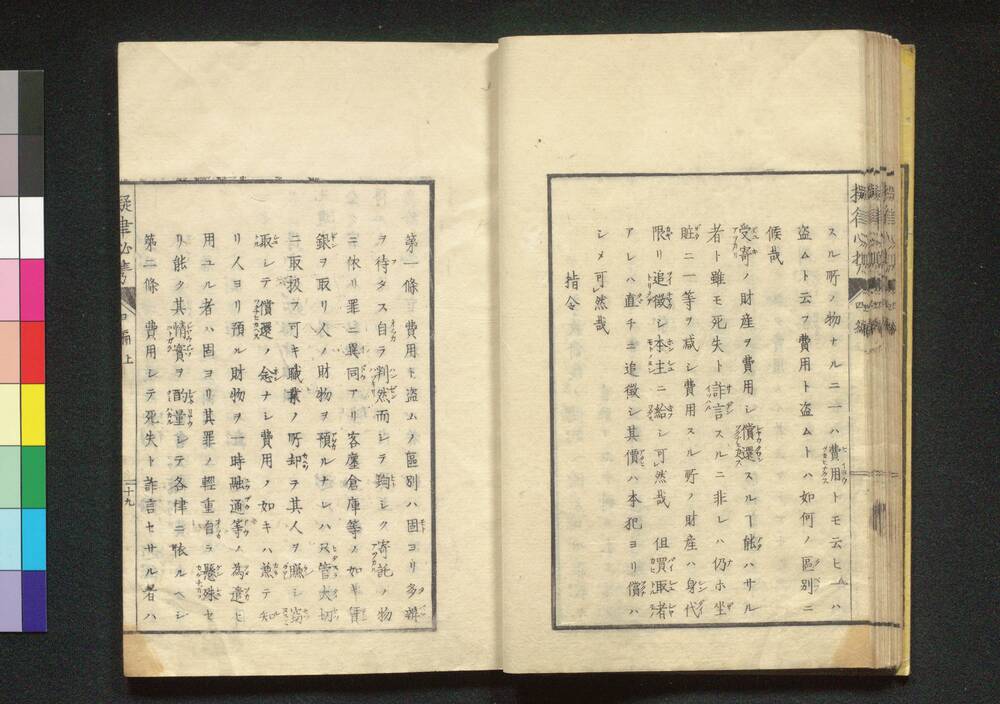 スル所ノ物ナルニ一ハ費用トモ云ヒ一ハ
盗ムト云フ費用ト盗ムトハ如何ノ區別ニ
候哉
受寄ノ財産ヲ費用シ償還スルヿ能ハサル
者ト雖モ死失ト詐言スルニ非レハ仍ホ坐
贓ニ一等ヲ减シ費用スル所ノ財産ハ身代
限リ追徴シ本主ニ給シ可然哉 但買取者
アレハ直チニ追徴シ其價ハ本犯ヨリ償ハ
シメ可然哉
指令
第一條 費用ト盗ムノ區別ハ固ヨリ多辨
ヲ待タス自ラ判然而シテ鞫シク寄託ノ物
ニ依リ罪ニ異同アリ客廛倉庫等ノ如キ賃
銀ヲ取リ人ノ財物ヲ預ルナレハ只管大切
ニ取扱フ可キ職業ノ所却ヲ其人ヲ賺シ竊
取シテ償還ノ念ナシ費用ノ如キハ兼テ知
リ人ヨリ預ル財物ヲ一時融通等ノ為遣ヒ
用ユル者ハ固ヨリ其罪ノ輕重自ラ懸殊セ
リ能タ其情實ヲ酌量シテ各律ニ依ルヘシ
第二條 費用シテ死失ト詐言セサル者ハ
四編 上
二十九